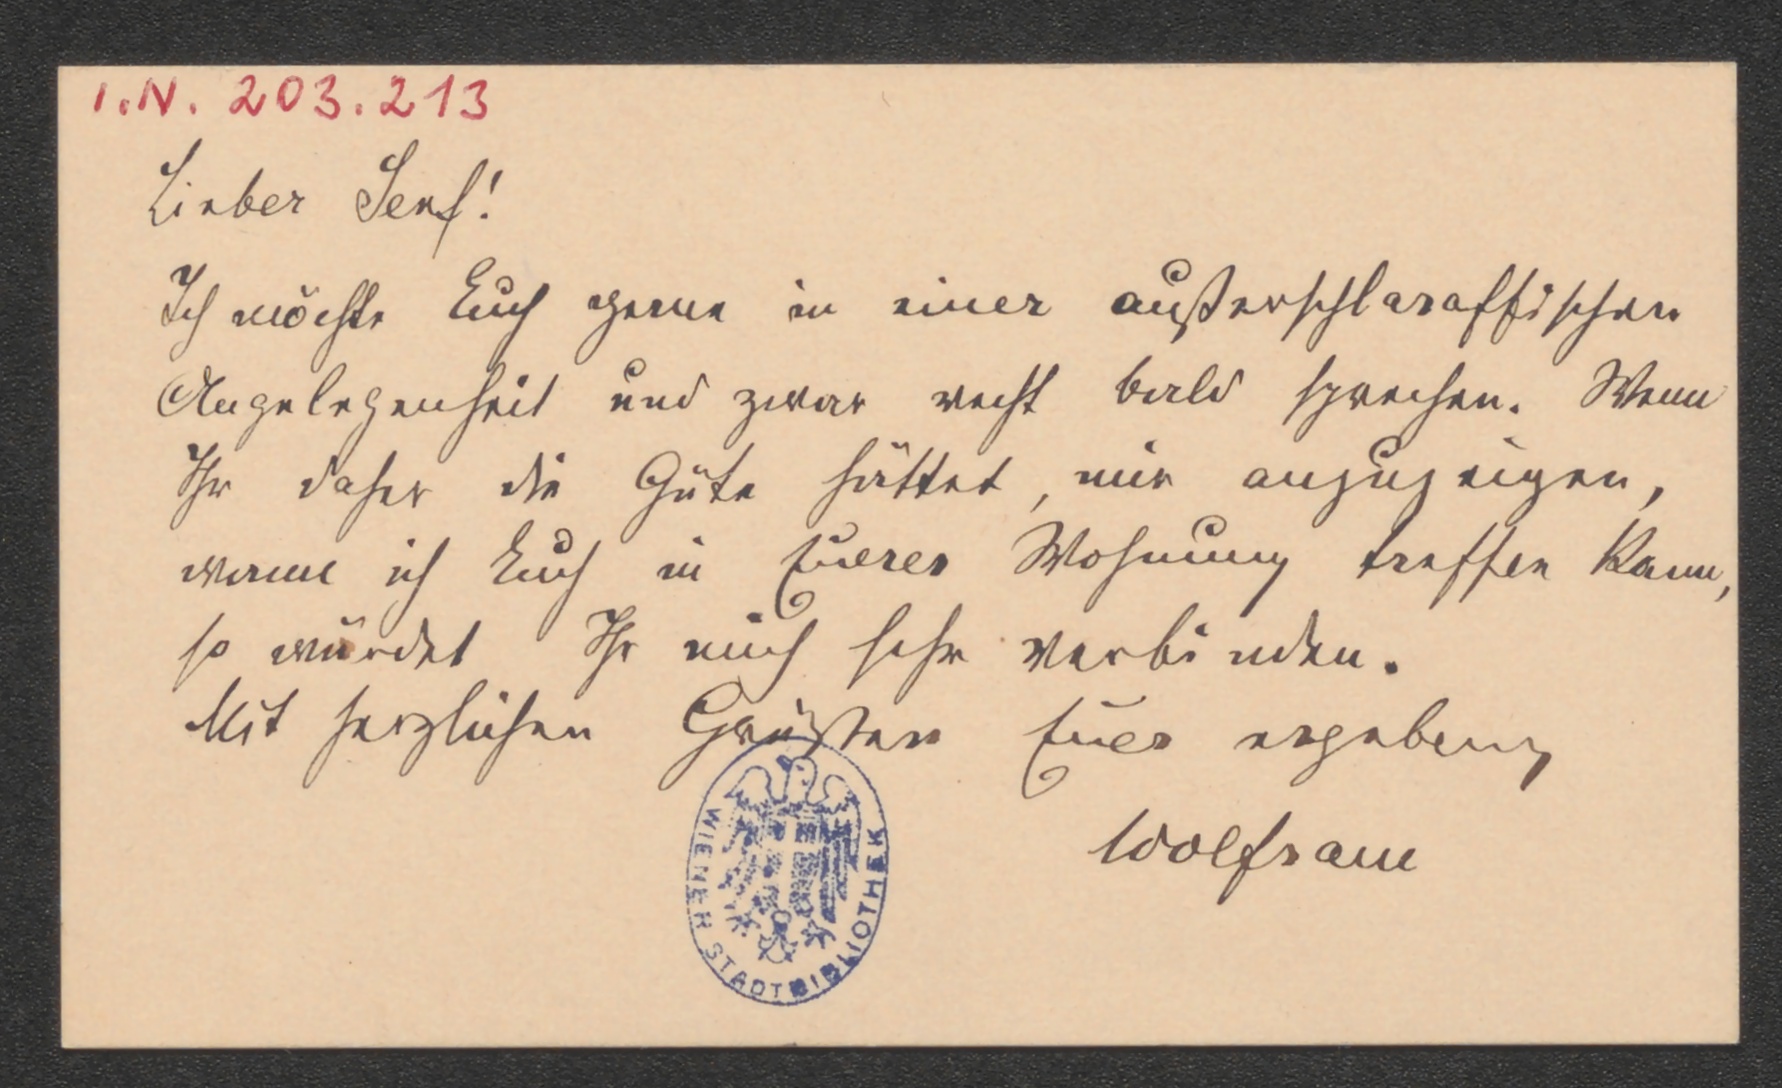 I.N. 203.213
Lieber Senf!
Ich möchte Euch gerne in einer außerschlaraffischen
Angelegenheit und zwar recht bald sprechen. Wenn
Ihr daher die Güte hättet, mir anzuzeigen,
wann ich Euch in Euerer Wohnung treffen kann,
so würdet Ihr mich sehr verbinden.
Mit herzlichen Grüßen Euer ergebener
Wolfram
WIENER STADTBIBLIOTHEK